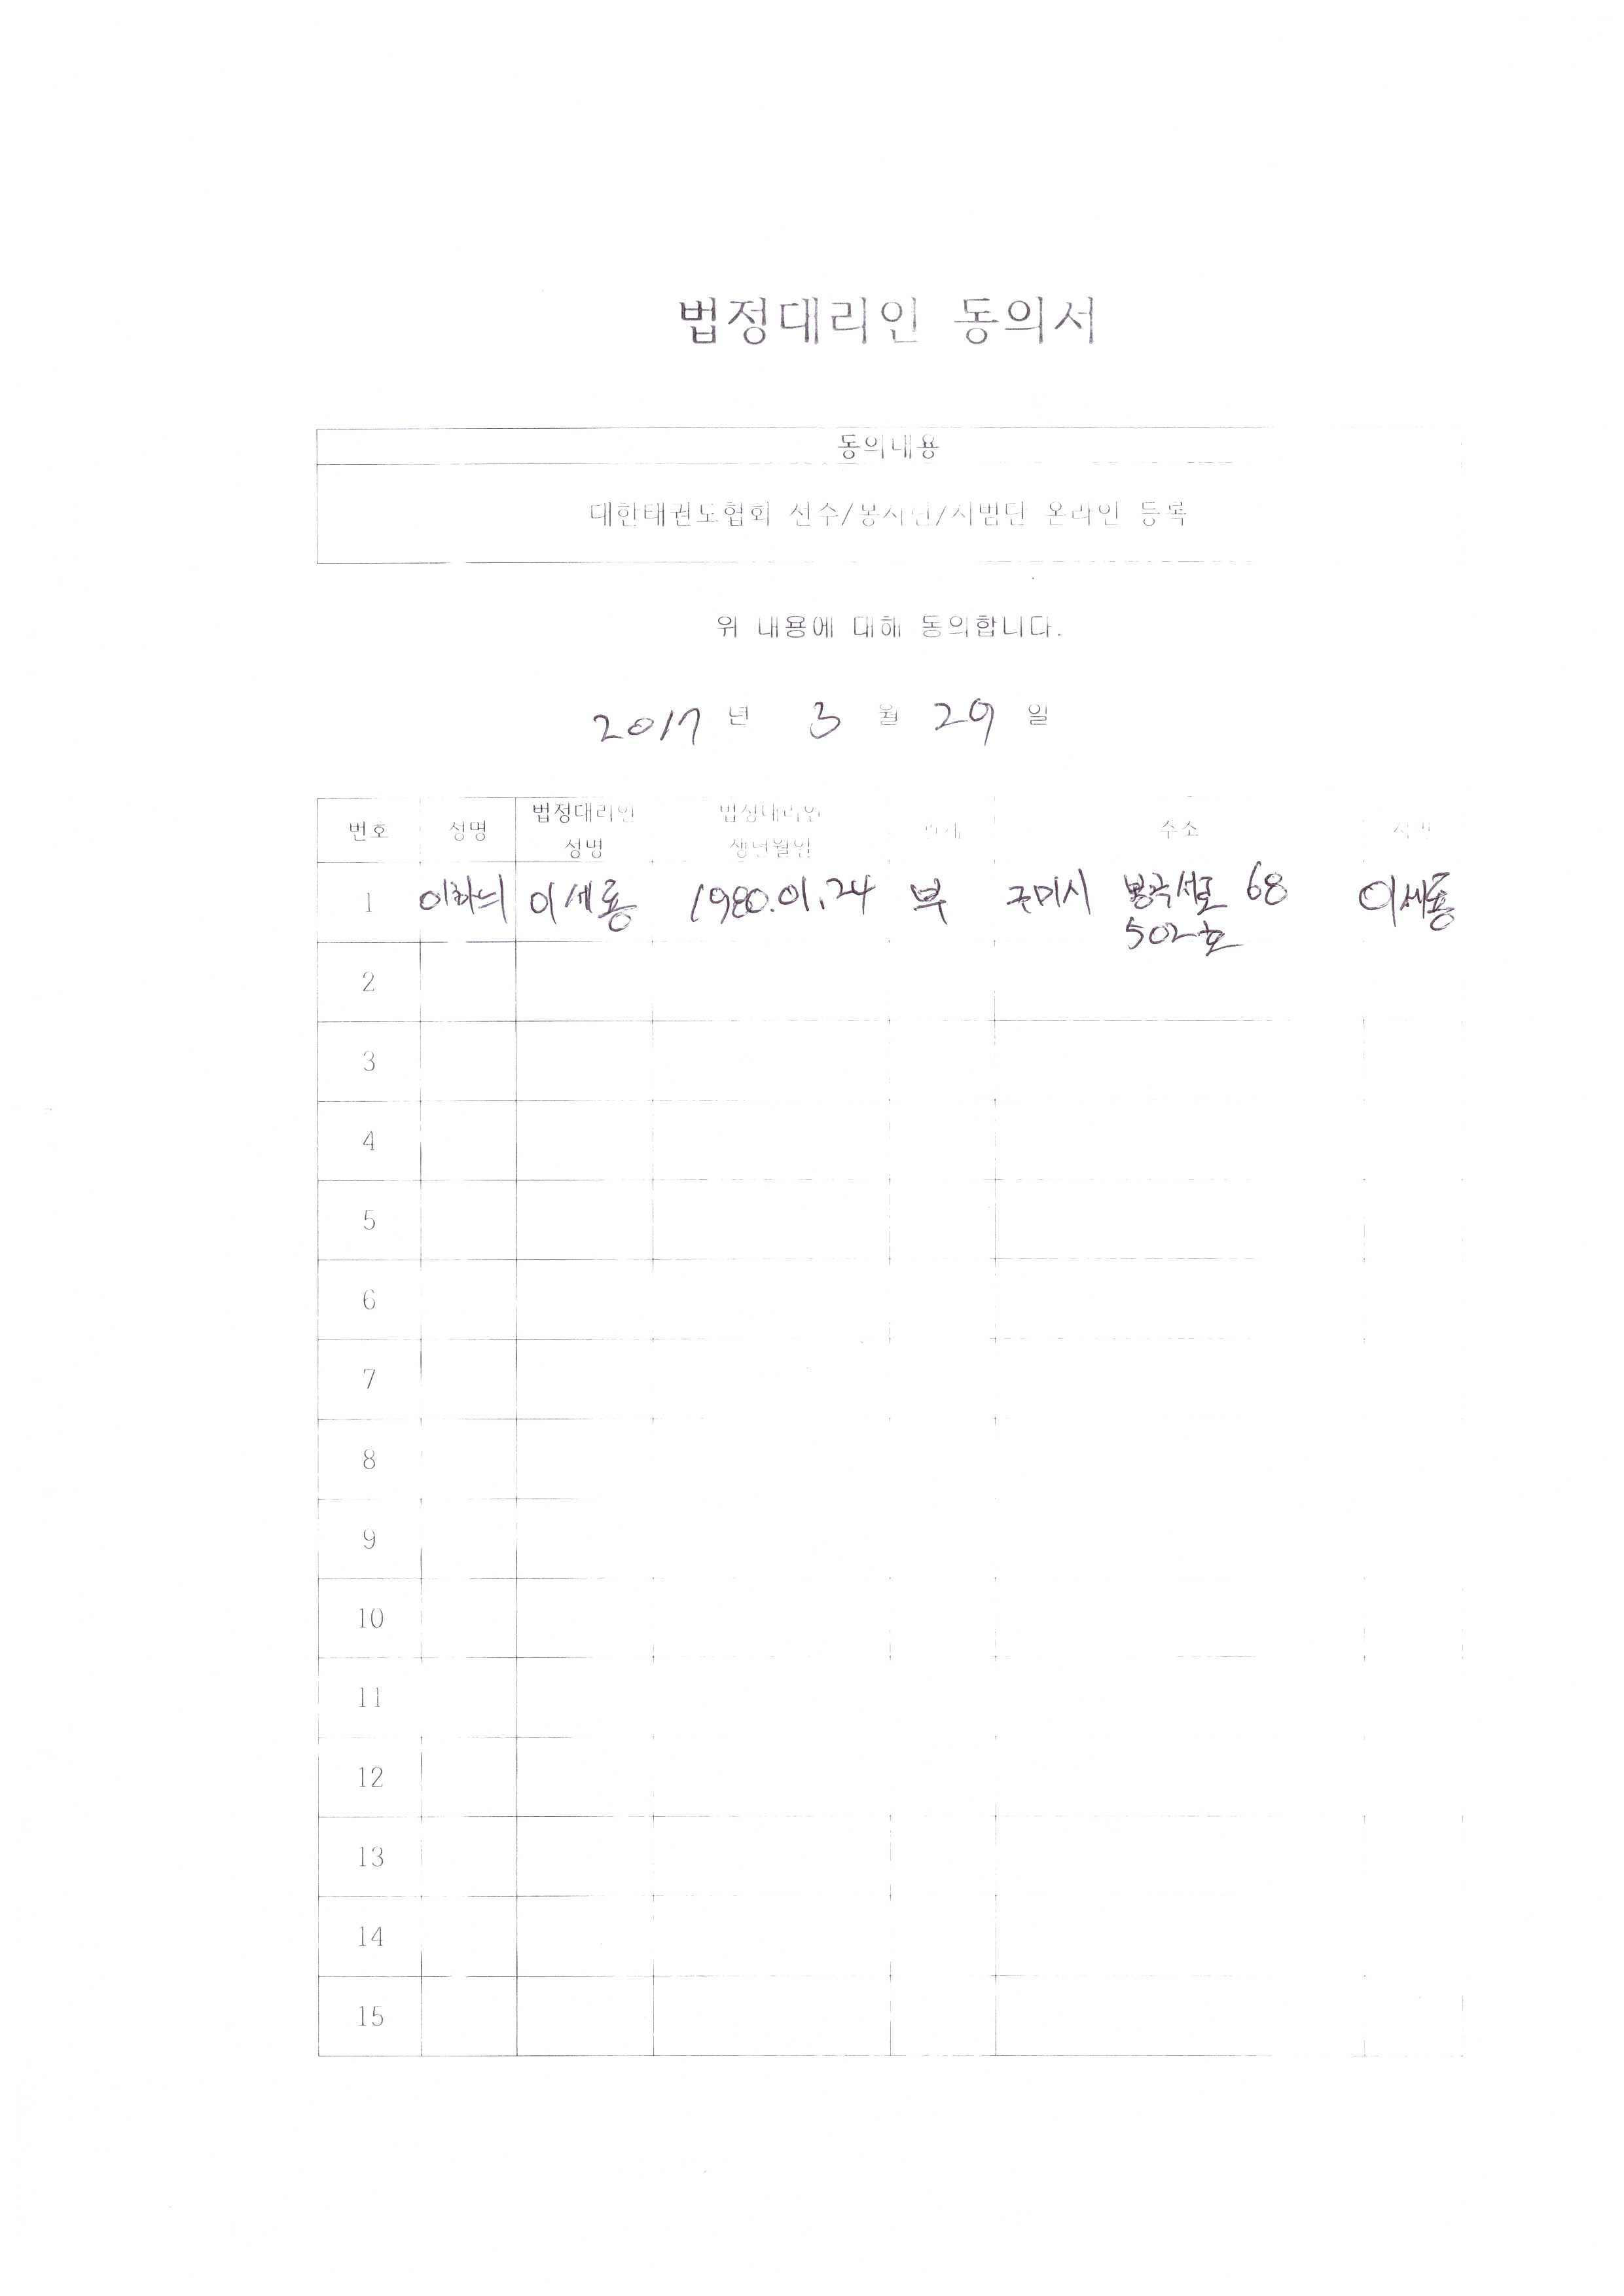 법정대리인 동의서
동의내용
대한태권도협회 선수/봉사단/시범단 온라인 등록
위 내용에 대해 동의합니다.
2017 년 3 월 29 일
번호 성명 법정대리인 성명 법정대리인 생년월일 관계 주소 서명
1 이세룡 1980.01.24 부 구미시 봉곡서로 68 이세룡
502호
2
3
4
5
6
7
8
9
10
11
12
13
14
15